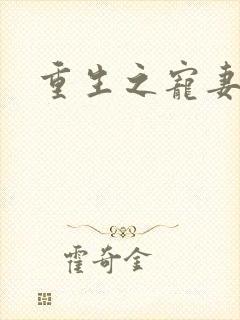 重生之寵妻
霍奇金